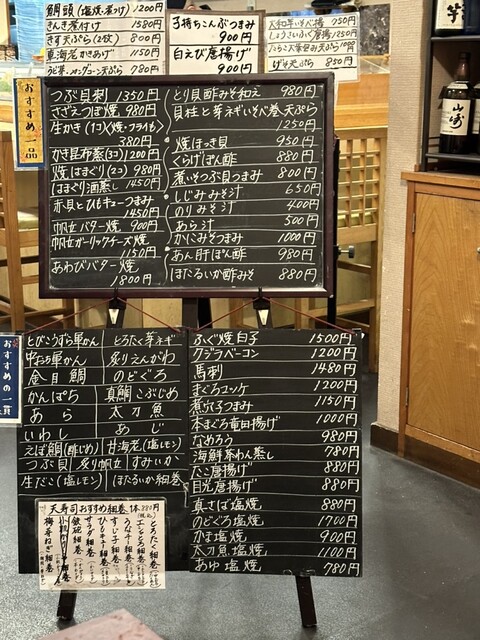 鯛頭(塩焼・煮つけ) 1200円
きんき煮付け 1580円
きす天ぷら(2枚) 800円
車海老かきあげ 1150円
子持ちこんぶつまみ
900円
白えび唐揚げ
900円
大和芋いそべ揚 750円
しょうさいふぐ唐揚 850円
げそ天ぷら 850円
おすすめ一品
つぶ貝刺 1350円
さざえつぼ焼 980円
生かき(1コ)〈焼・フライも〉
380円
かき昆布蒸(3コ) 1200円
焼はまぐり(2コ) 980円
はまぐり酒蒸し 1450円
赤貝とひもキューつまみ
1450円
帆立バター焼 900円
帆立ガーリックチーズ焼
1150円
あわびバター焼
1800円
とり貝酢みそ和え 980円
貝柱と芽ネギいそべ巻天ぷら
1250円
焼ほっき貝 950円
くらげぽん酢 880円
煮いそつぶ貝つまみ 800円
しじみみそ汁 650円
のりみそ汁 400円
あら汁 500円
かにみそつまみ 1000円
あん肝ぽん酢 980円
ほたるいか酢みそ 880円
おすすめの一貫
とびこうずら軍かん
とろたく芽ネギ
中おち軍かん
炙りえんがわ
金目鯛
のどぐろ
かんぱち
真鯛こぶじめ
あら
太刀魚
いわし
あじ
えぼ鯛(酢じめ)
甘海老(塩レモン)
つぶ貝
炙り帆立
すみいか
生だこ(塩レモン)
ほたるいか細巻
天寿司おすすめ細巻 1本 880円
とろたく細巻
サラダ細巻
鉄砲細巻
梅芽ねぎ細巻
ふぐ焼白子 1500円
クジラベーコン 1200円
馬刺 1480円
まぐろユッケ 1200円
煮穴子つまみ 1150円
本まぐろ竜田揚げ 1000円
なめろう 980円
海鮮茶わん蒸し 780円
たこ唐揚げ 880円
目光唐揚げ 880円
真さば塩焼 880円
のどぐろ塩焼 1700円
かま塩焼 900円
太刀魚塩焼 1100円
あゆ塩焼 780円
山崎